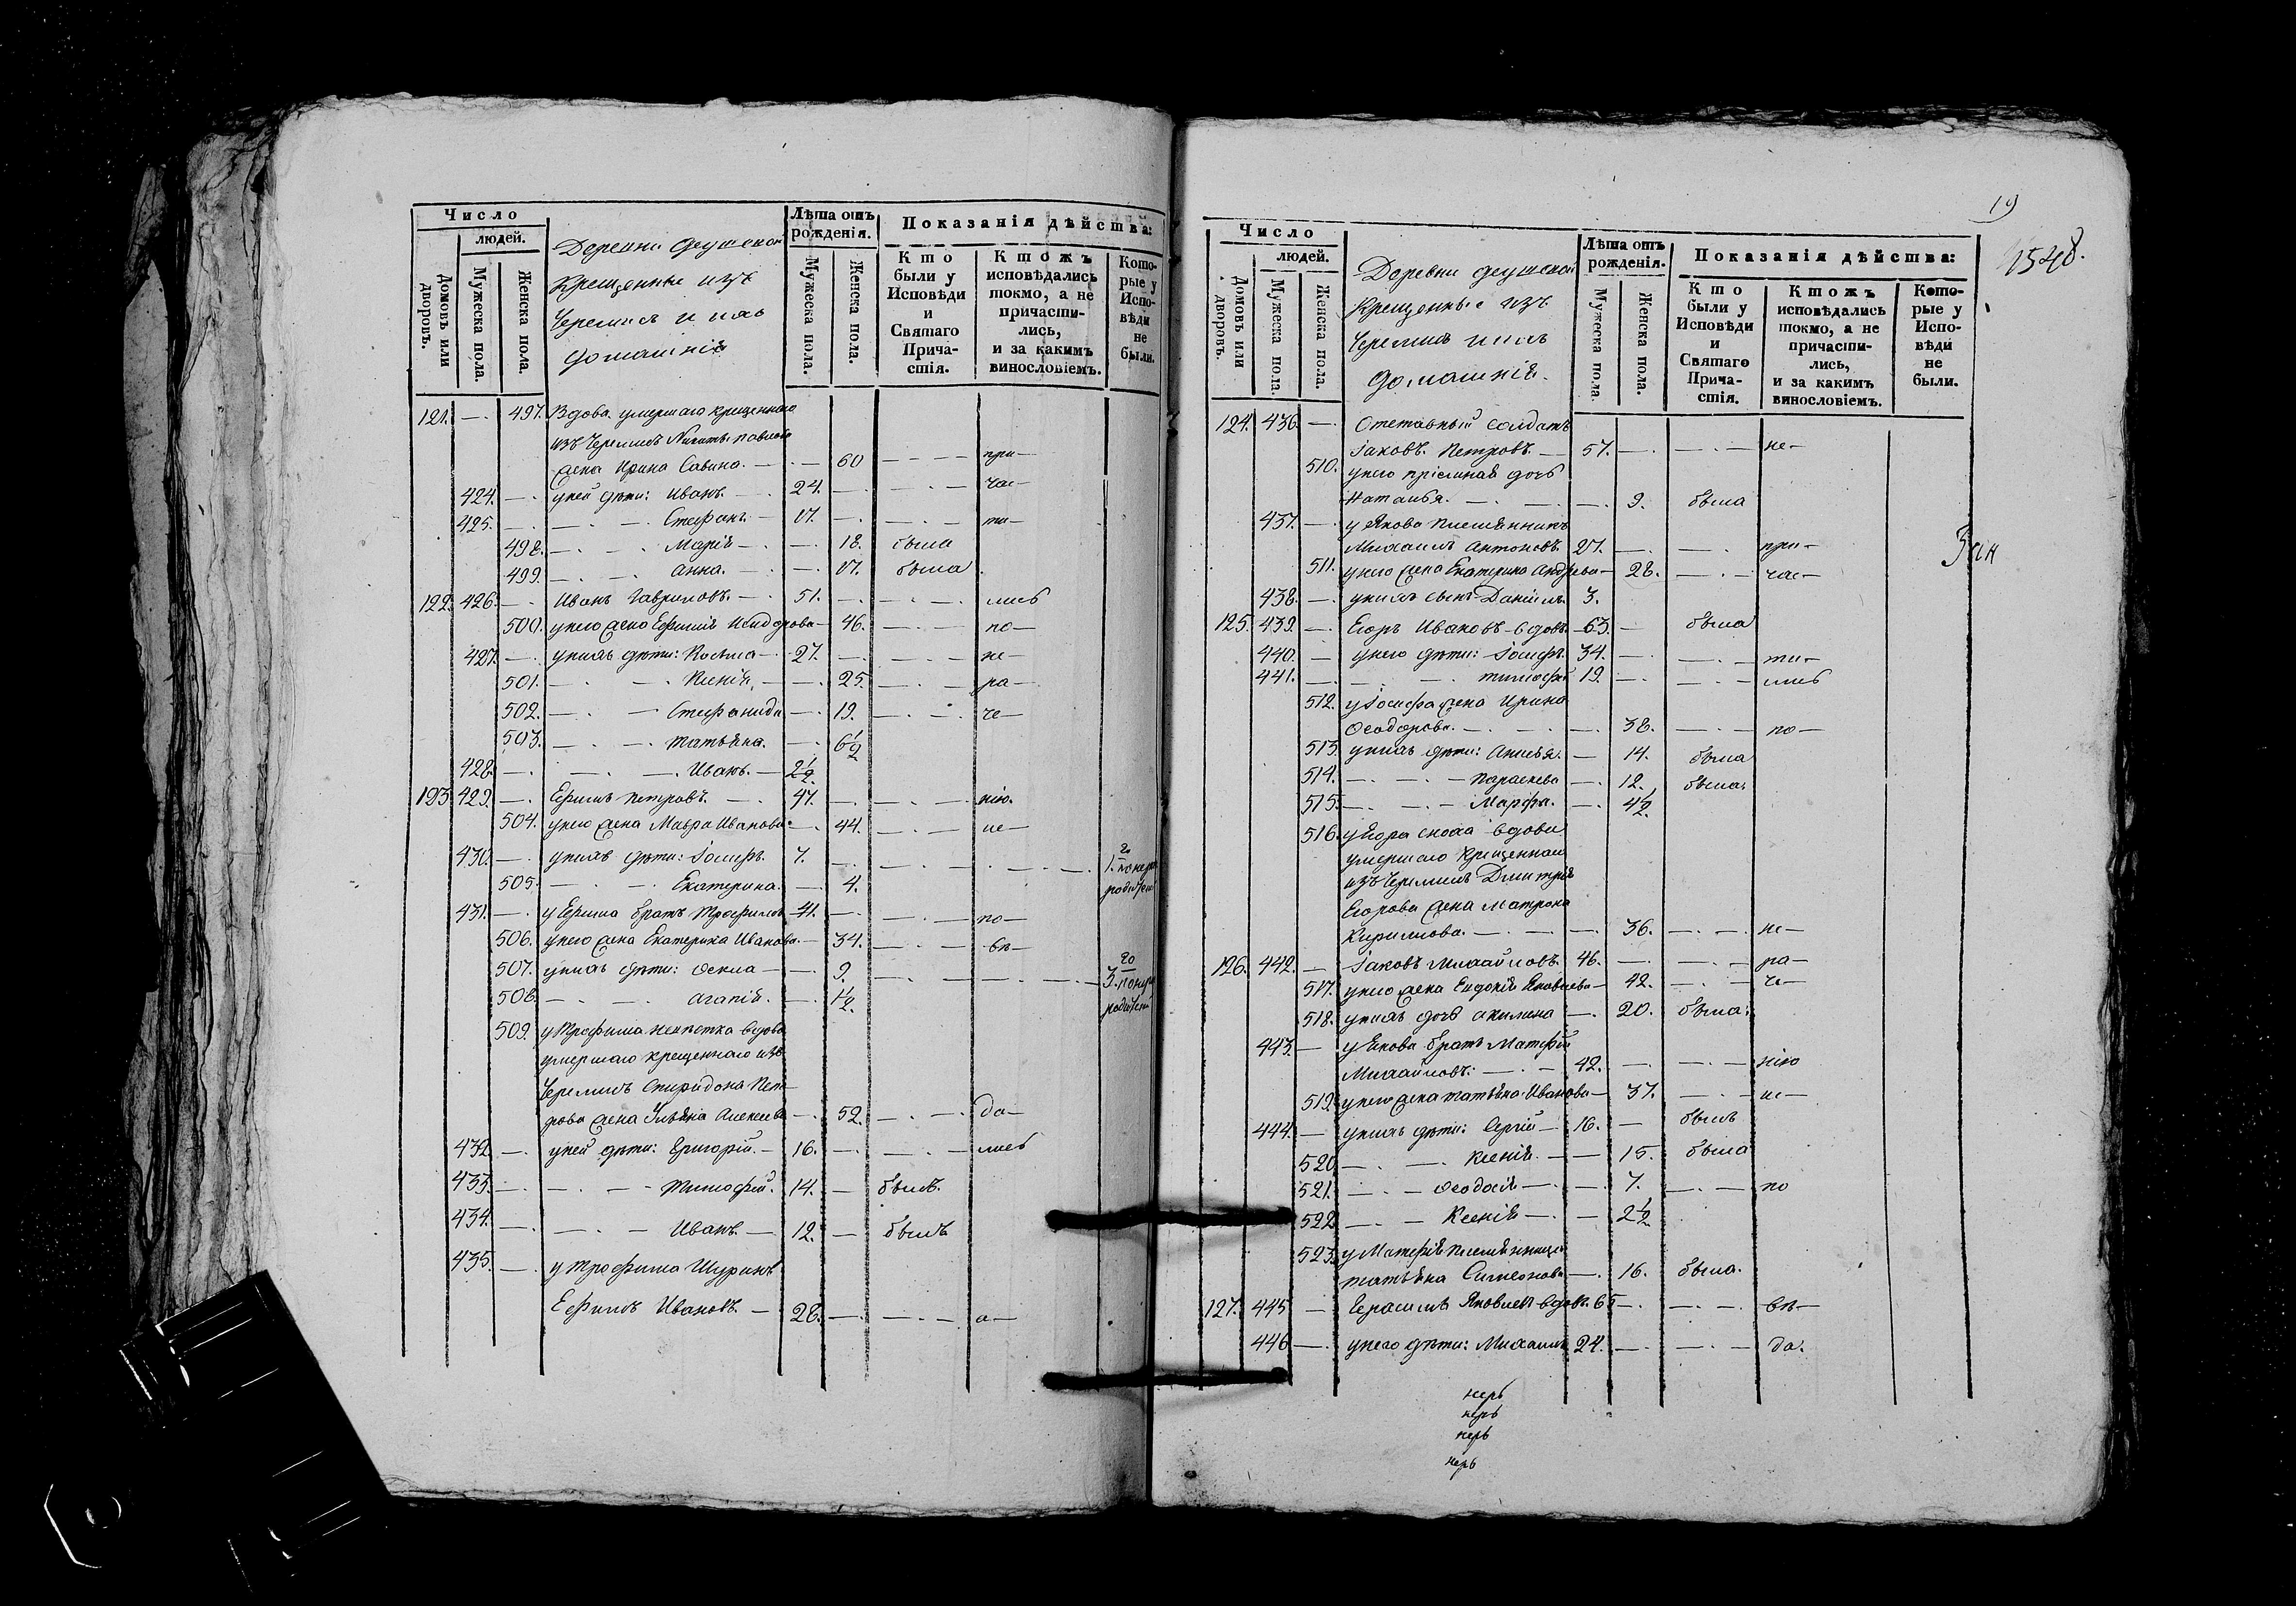 Число
людей.
Домовъ или дворовъ.
Мужеска пола.
Женска пола.
Деревни
Крещенные изъ
Черемисъ и ихъ
домашнія
Лѣта отъ рожденія.
Мужеска пола.
Женска пола.
Показанія дѣйства:
Кто были у Исповѣди и Святаго Причастія.
Ктожъ исповѣдались токмо, а не причастились, и за какимъ винословіемъ.
Которые у Исповѣди не были.
121. — 497. Вдова умершаго крещеннаго
изъ Черемисъ Никиты Павлова
жена Ирина Савина. — 60 — при—
424. — у ней дѣти: Иванъ. — 24. — час—
425. — Стефанъ. — 17. — ти—
498. — Марія — 18. была
499. — Анна. — 17. была
122. 426. — Иванъ Гавриловъ. — 51. — лись
500. у него жена Евфимія Исидорова — 46. — по—
427. — у нихъ дѣти: Косьма — 27. — не—
501. — Ксенія. — 25. — ра—
502. — Стефанида — 19. — че—
503. — Татьяна. — 6½
428. — Иванъ. — 2½
193. 429. — Ефимъ Петровъ. — 47. — нію.
504. у него жена Мавра Иванова — 44. — не—
430. — у нихъ дѣти: Іосифъ. 7. —
505. — Екатерина. — 4.
431. — у Ефима братъ Трофимъ 41. — по—
506. у него жена Екатерина Иванова. — 34. — вѣ—
507. у нихъ дѣти: Фекла — 9. —
508. — Агапія. — 1½
509. у Трофима невѣстка вдова
умершаго крещеннаго изъ
Черемисъ Спиридона Пет—
рова жена Ульяна Алексѣева — 52. — да—
432. — у ней дѣти: Григорій. — 16. — лись
433. — Тимофей. 14. — былъ.
434. — Иванъ. — 12. — былъ
435. — у Трофима Шуринъ
Ефимъ Ивановъ. — 28. — а—
19
1548.
Число
людей.
Домовъ или дворовъ.
Мужеска пола.
Женска пола.
Деревни
Крещенные изъ
Черемисъ и ихъ
домашнія.
Лѣта отъ рожденія.
Мужеска пола.
Женска пола.
Показанія дѣйства:
Кто были у Исповѣди и Святаго Причастія.
Ктожъ исповѣдались токмо, а не причастились, и за какимъ винословіемъ.
Которые у Исповѣди не были.
124. 436. — Отставный солдатъ
Іаковъ Петровъ. — 57. — не—
510. у него пріемная дочь
Наталья. — 9. была
437. — у Якова племянникъ
Михаилъ Антоновъ. 27. — при—
511. у него жена Екатерина Андреева — 28. — час—
438. — у нихъ сынъ Даніилъ. 3.
125. 439. — Егоръ Ивановъ вдовъ. 63. — была
440. — у него дѣти: Іосифъ. 34. — ти—
441. — Тимофей 19. — лись
512. у Іосифа жена Ирина
Ѳеодорова. — 38. — по—
513. у нихъ дѣти: Анисья. — 14. была
514. — Параскева — 12. была.
515. — Марфа. — 4½
516. у Егора сноха вдова
умершаго крещеннаго
изъ Черемисъ Дмитрія
Егорова жена Матрона
Кириллова. — 36. — не—
126. 442. — Іаковъ Михайловъ. 46. — ра—
517. у него жена Евдокія Яковлева — 42. — че—
518. у нихъ дочь Акилина — 20. была.
443. — у Якова братъ Матфей
Михайловъ. — 42. — нію
519. у него жена Татьяна Иванова — 37. — ис—
444. — у нихъ дѣти: Сергій — 16. — былъ
520. — Ксенія. — 15. была
521. — Ѳеодосія — 7. — по
522. — Ксенія — 2½
523. у Матфея племянница
Татьяна Симеонова — 16. была.
127. 445 — Герасимъ Яковлевъ вдовъ. 65 — вѣ—
446 — у него дѣти: Михаилъ 24. — да.